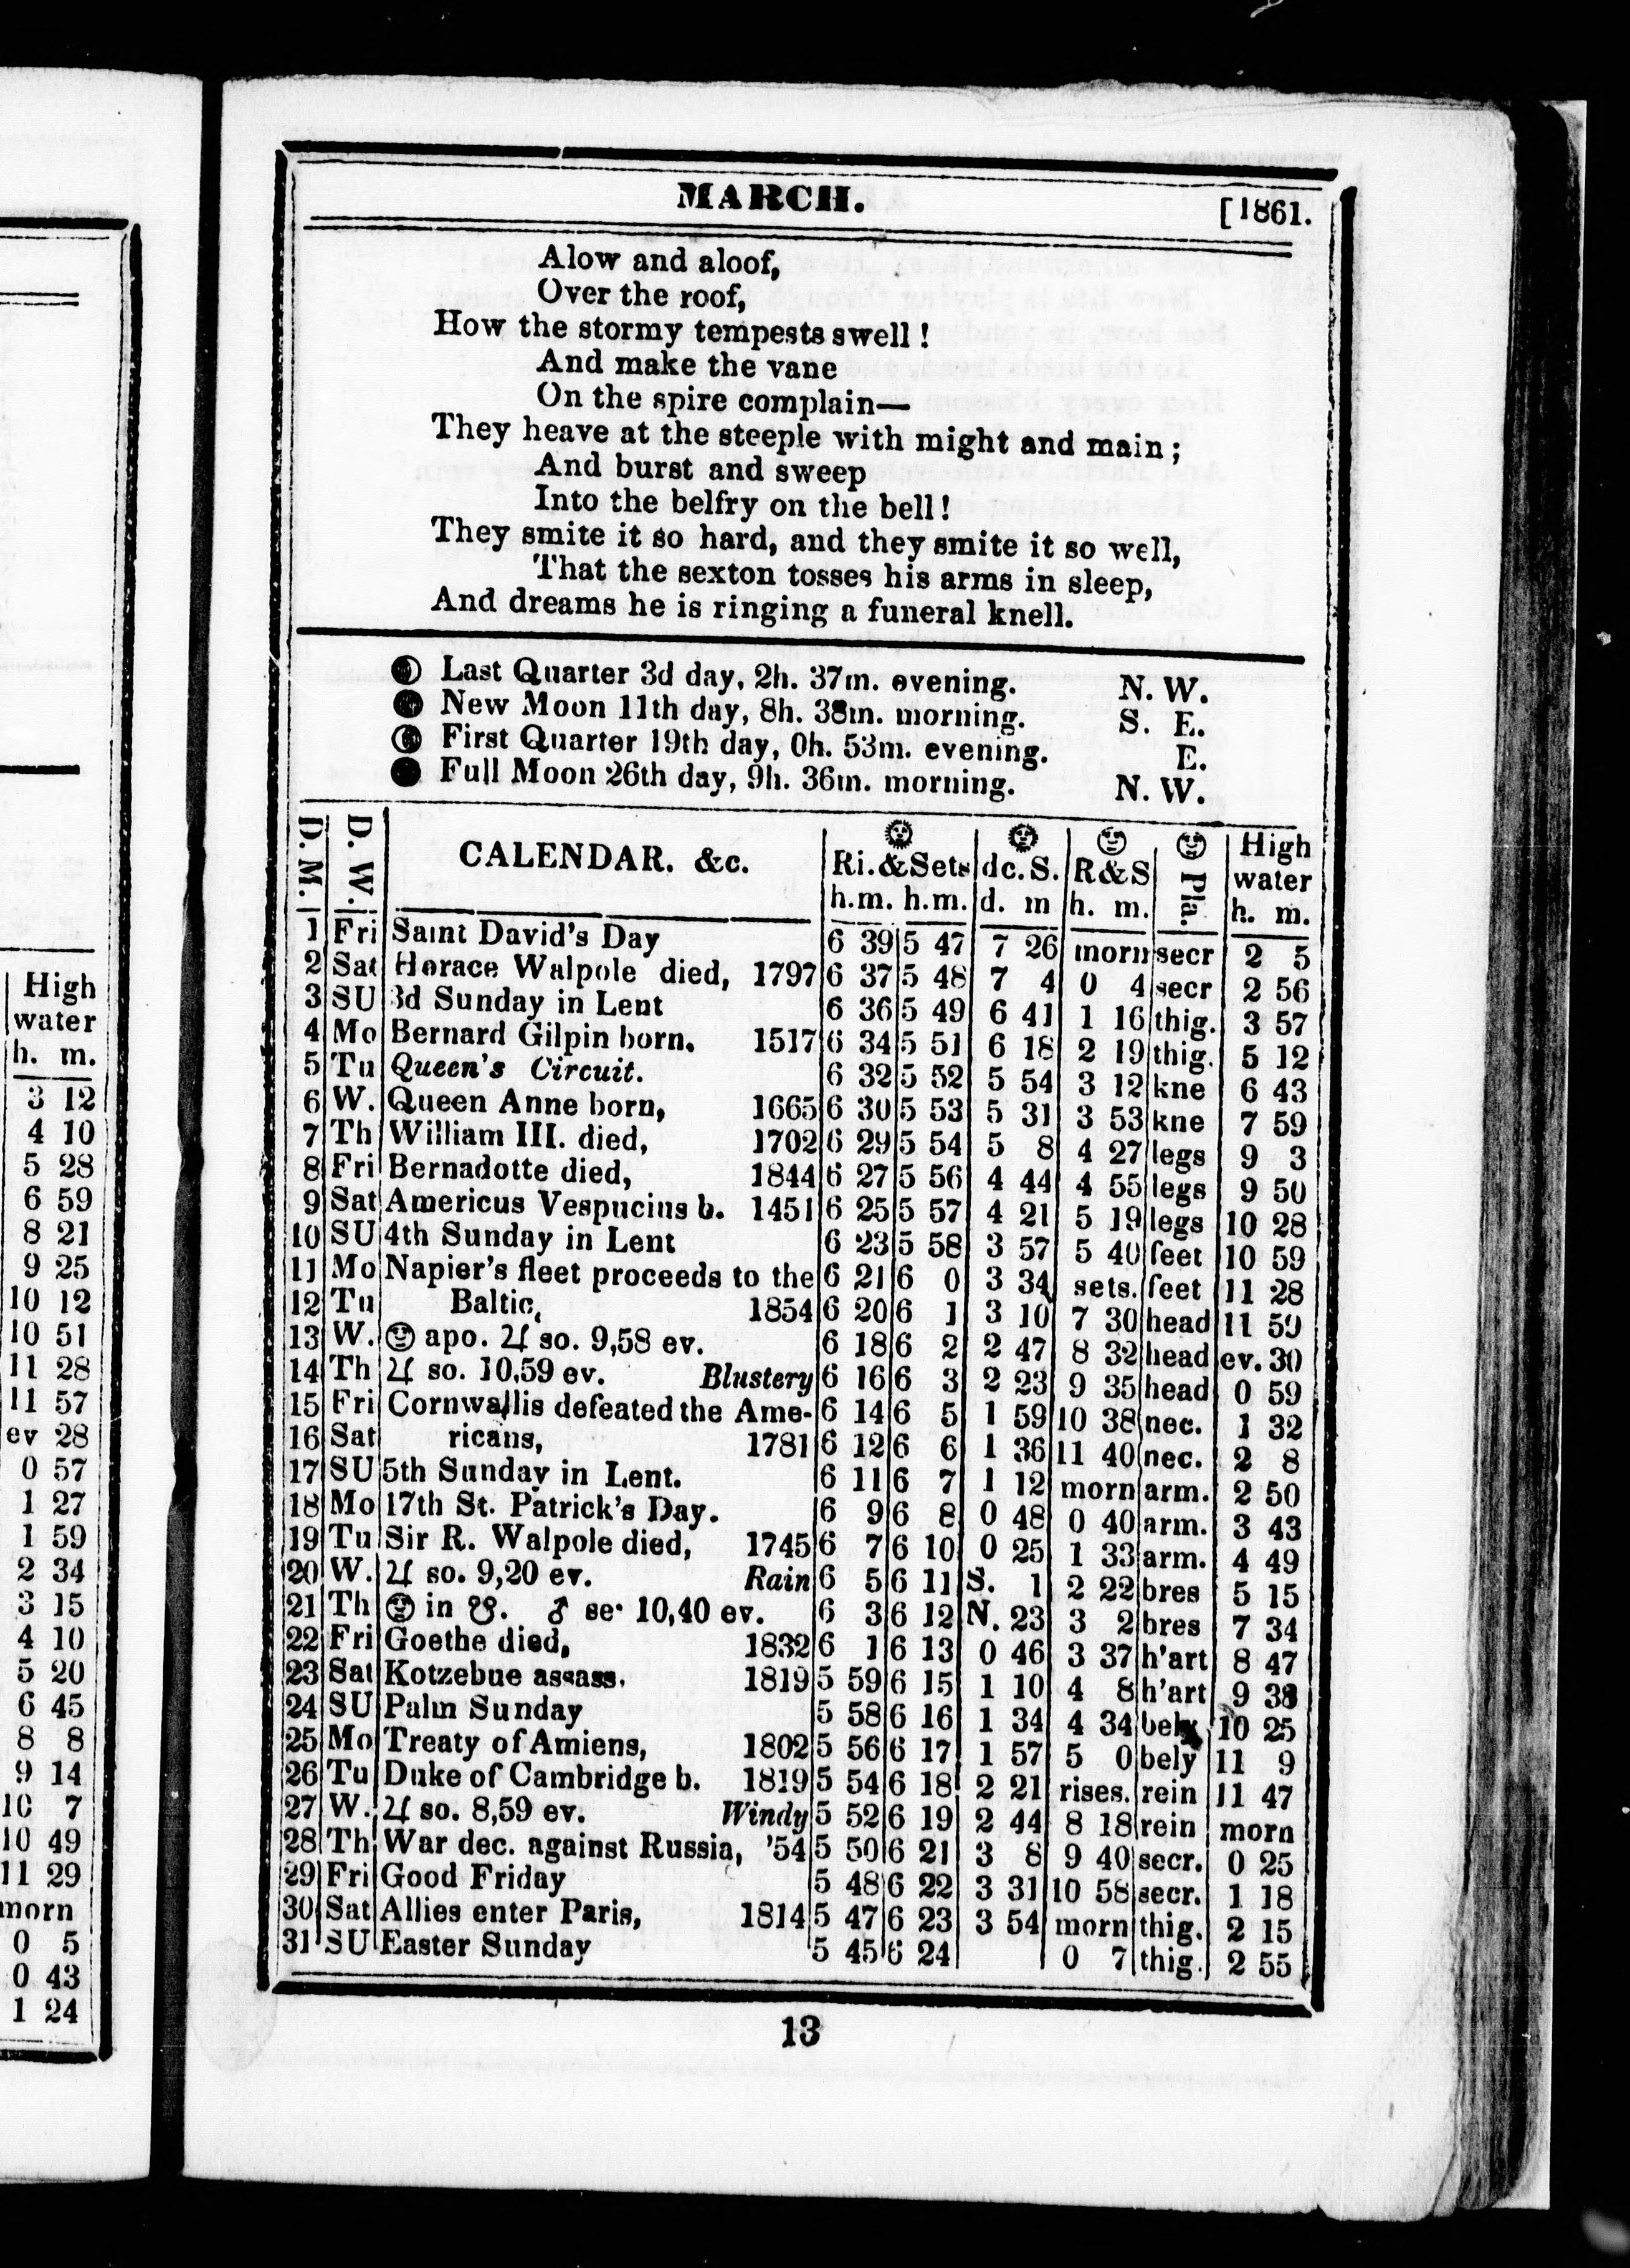 High
water
h. m.
3 12
4 10
5 28
6 59
8 21
9 25
10 12
10 51
11 28
11 57
ev 28
0 57
1 27
1 59
2 34
3 15
4 10
5 20
6 45
8 8
9 14
10 7
10 49
11 29
morn
0 5
0 43
1 24
MARCH. [1861.
Alow and aloof,
Over the roof,
How the stormy tempests swell!
And make the vane
On the spire complain—
They heave at the steeple with might and main;
And burst and sweep
Into the belfry on the bell!
They smite it so hard, and they smite it so well,
That the sexton tosses his arms in sleep,
And dreams he is ringing a funeral knell.
Last Quarter 3d day, 2h. 37m. evening. N. W.
New Moon 11th day, 8h. 38m. morning. S. E.
First Quarter 19th day, 0h. 53m. evening. E.
Full Moon 26th day, 9h. 36m. morning. N. W.
D. M. D. W. CALENDAR, &c. Ri.&Sets dc. S. R&S Pla. High water
h.m. h.m. d. m h. m. h. m.
1 Fri Saint David's Day 6 39 5 47 7 26 morn secr 2 5
2 Sat Horace Walpole died, 1797 6 37 5 48 7 4 0 4 secr 2 56
3 SU 3d Sunday in Lent 6 36 5 49 6 41 1 16 thig. 3 57
4 Mo Bernard Gilpin born. 1517 6 34 5 51 6 18 2 19 thig. 5 12
5 Tu Queen's Circuit. 6 32 5 52 5 54 3 12 kne 6 43
6 W. Queen Anne born, 1665 6 30 5 53 5 31 3 53 kne 7 59
7 Th William III. died, 1702 6 29 5 54 5 8 4 27 legs 9 3
8 Fri Bernadotte died, 1844 6 27 5 56 4 44 4 55 legs 9 50
9 Sat Americus Vespucius b. 1451 6 25 5 57 4 21 5 19 legs 10 28
10 SU 4th Sunday in Lent 6 23 5 58 3 57 5 40 feet 10 59
11 Mo Napier's fleet proceeds to the 6 21 6 0 3 34 sets. feet 11 28
12 Tu Baltic, 1854 6 20 6 1 3 10 7 30 head 11 59
13 W. apo. ♃ so. 9,58 ev. 6 18 6 2 2 47 8 32 head ev. 30
14 Th ♃ so. 10,59 ev. Blustery 6 16 6 3 2 23 9 35 head 0 59
15 Fri Cornwallis defeated the Ame- 6 14 6 5 1 59 10 38 nec. 1 32
16 Sat ricans, 1781 6 12 6 6 1 36 11 40 nec. 2 8
17 SU 5th Sunday in Lent. 6 11 6 7 1 12 morn arm. 2 50
18 Mo 17th St. Patrick's Day. 6 9 6 8 0 48 0 40 arm. 3 43
19 Tu Sir R. Walpole died, 1745 6 7 6 10 0 25 1 33 arm. 4 49
20 W. ♃ so. 9,20 ev. Rain 6 5 6 11 S. 1 2 22 bres 5 15
21 Th in ☋. ♂ se. 10,40 ev. 6 3 6 12 N. 23 3 2 bres 7 34
22 Fri Goethe died, 1832 6 1 6 13 0 46 3 37 h'art 8 47
23 Sat Kotzebue assass. 1819 5 59 6 15 1 10 4 8 h'art 9 38
24 SU Palm Sunday 5 58 6 16 1 34 4 34 bely 10 25
25 Mo Treaty of Amiens, 1802 5 56 6 17 1 57 5 0 bely 11 9
26 Tu Duke of Cambridge b. 1819 5 54 6 18 2 21 rises. rein 11 47
27 W. ♃ so. 8,59 ev. Windy 5 52 6 19 2 44 8 18 rein morn
28 Th War dec. against Russia, '54 5 50 6 21 3 8 9 40 secr. 0 25
29 Fri Good Friday 5 48 6 22 3 31 10 58 secr. 1 18
30 Sat Allies enter Paris, 1814 5 47 6 23 3 54 morn thig. 2 15
31 SU Easter Sunday 5 45 6 24 0 7 thig. 2 55
13